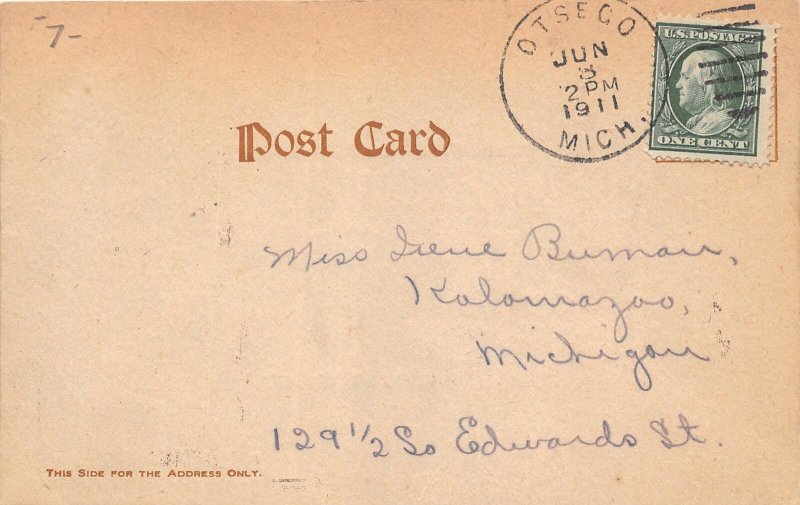 -7-
OTSEGO
JUN
3
2 PM
1911
MICH.
U.S. POSTAGE
ONE CENT
Post Card
Miss Irene Buman,
Kalamazoo,
Michigan
129 1/2 So Edwards St.
THIS SIDE FOR THE ADDRESS ONLY.